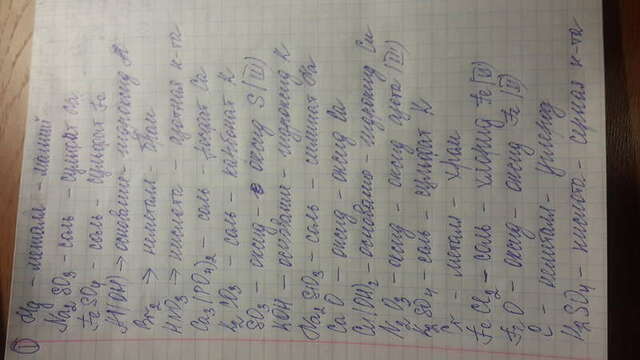 ① Mg - металл - магний
Na2SO3 - соль - сульфит Na
FeSO4 - соль - сульфат Fe
Al(OH) → основание - гидроксид Al
Br2 → неметалл - бром
HNO3 → кислота - азотная к-та
Ca3(PO4)2 - соль - фосфат Ca
K2CO3 - соль - карбонат K
SO3 - оксид - оксид S (VI)
KOH - основание - гидроксид K
Na2SiO3 - соль - силикат Na
CaO - оксид - оксид Ca
Cu(OH)2 - основание - гидроксид Cu
N2O3 - оксид - оксид азота (III)
K2SO4 - соль - сульфат K
Cr - металл - хром
FeCl2 - соль - хлорид Fe (II)
O - оксид - оксид Fe (II)
C - неметалл - углерод
H2SO4 - кислота - серная к-та